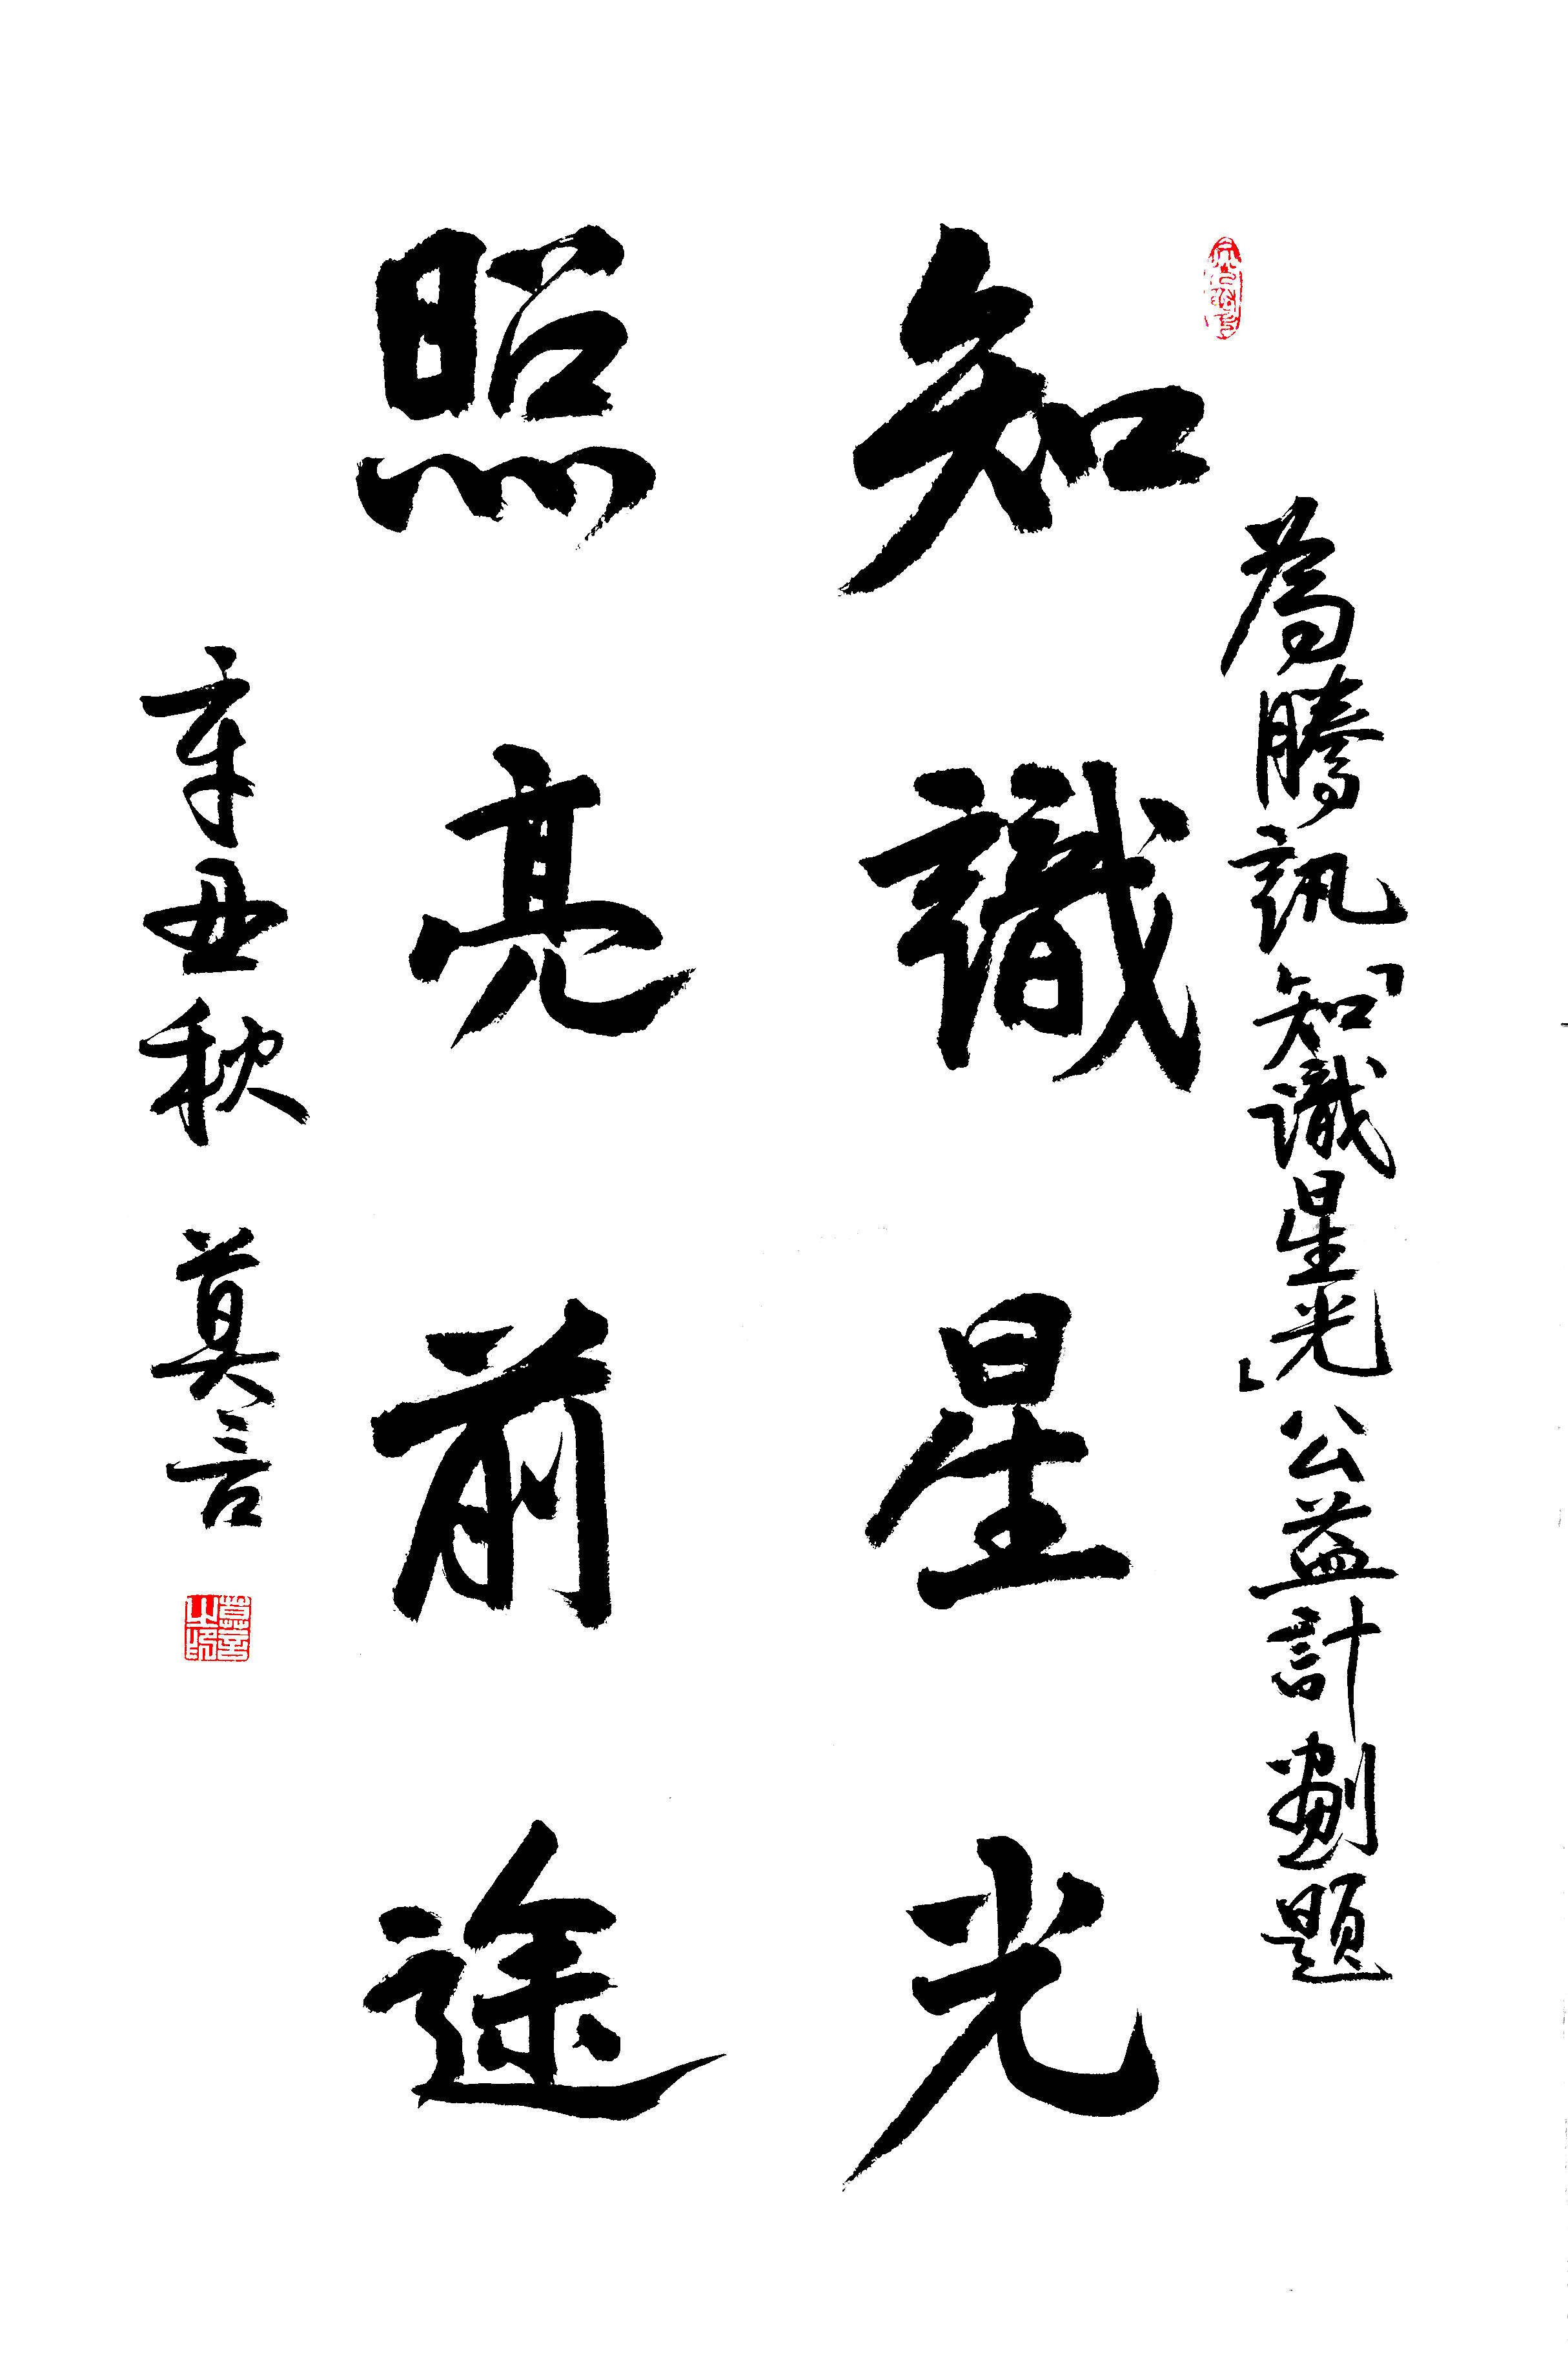 為騰訊「知識星光」公益計劃題
知識星光
照亮前途
辛丑秋 莫言
莫言之印